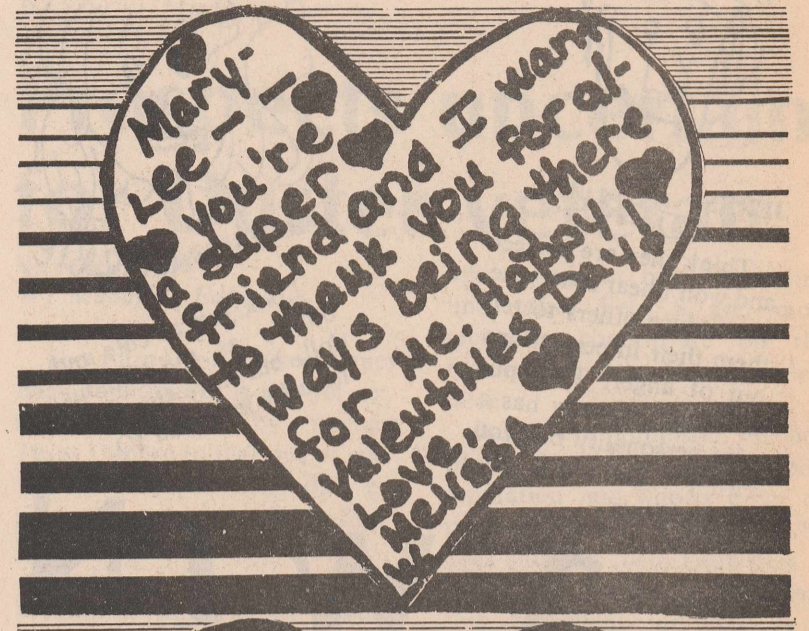 Mary-
Lee - I
you're
a super
friend and I want
to thank you for al-
ways being there
for me. Happy
Valentines Day!
Love,
Melissa
W.